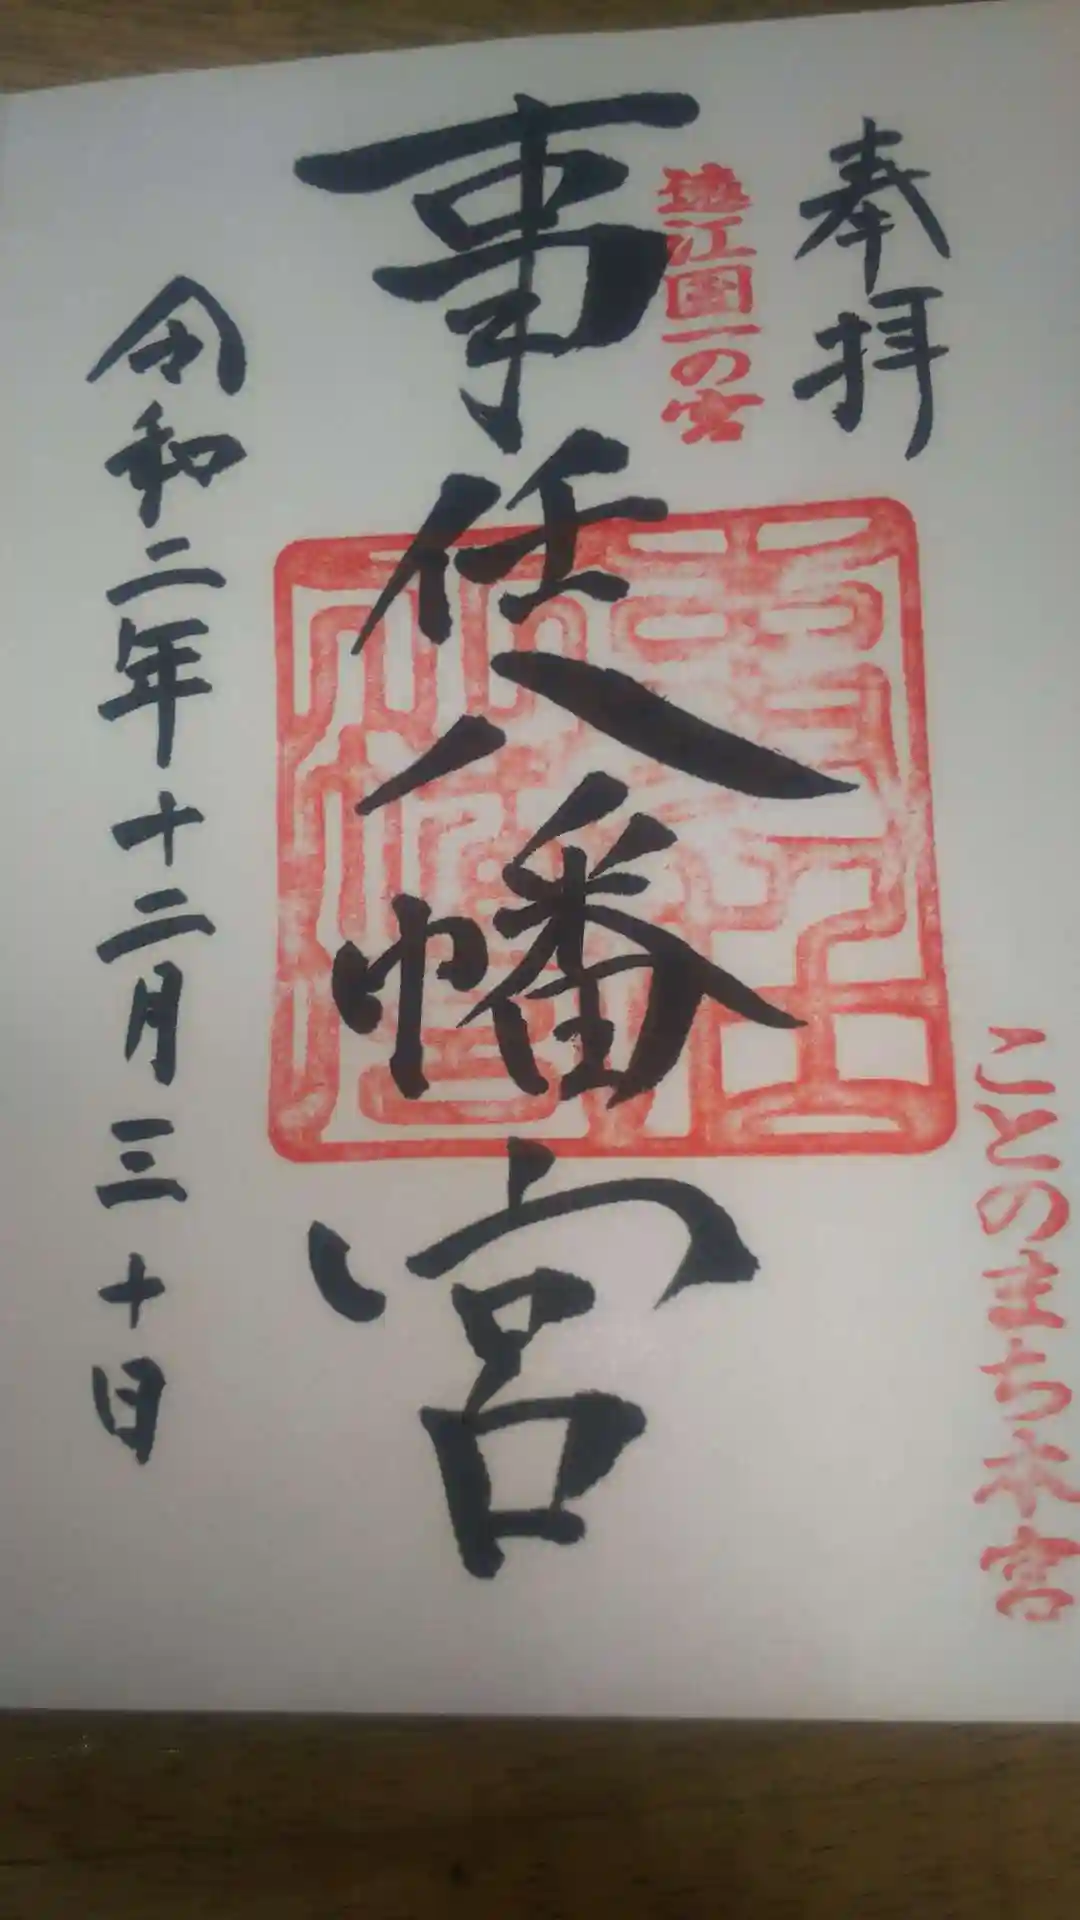 奉拝
遠江国一の宮
ことのまち本宮
事任八幡宮
令和二年十二月三十日